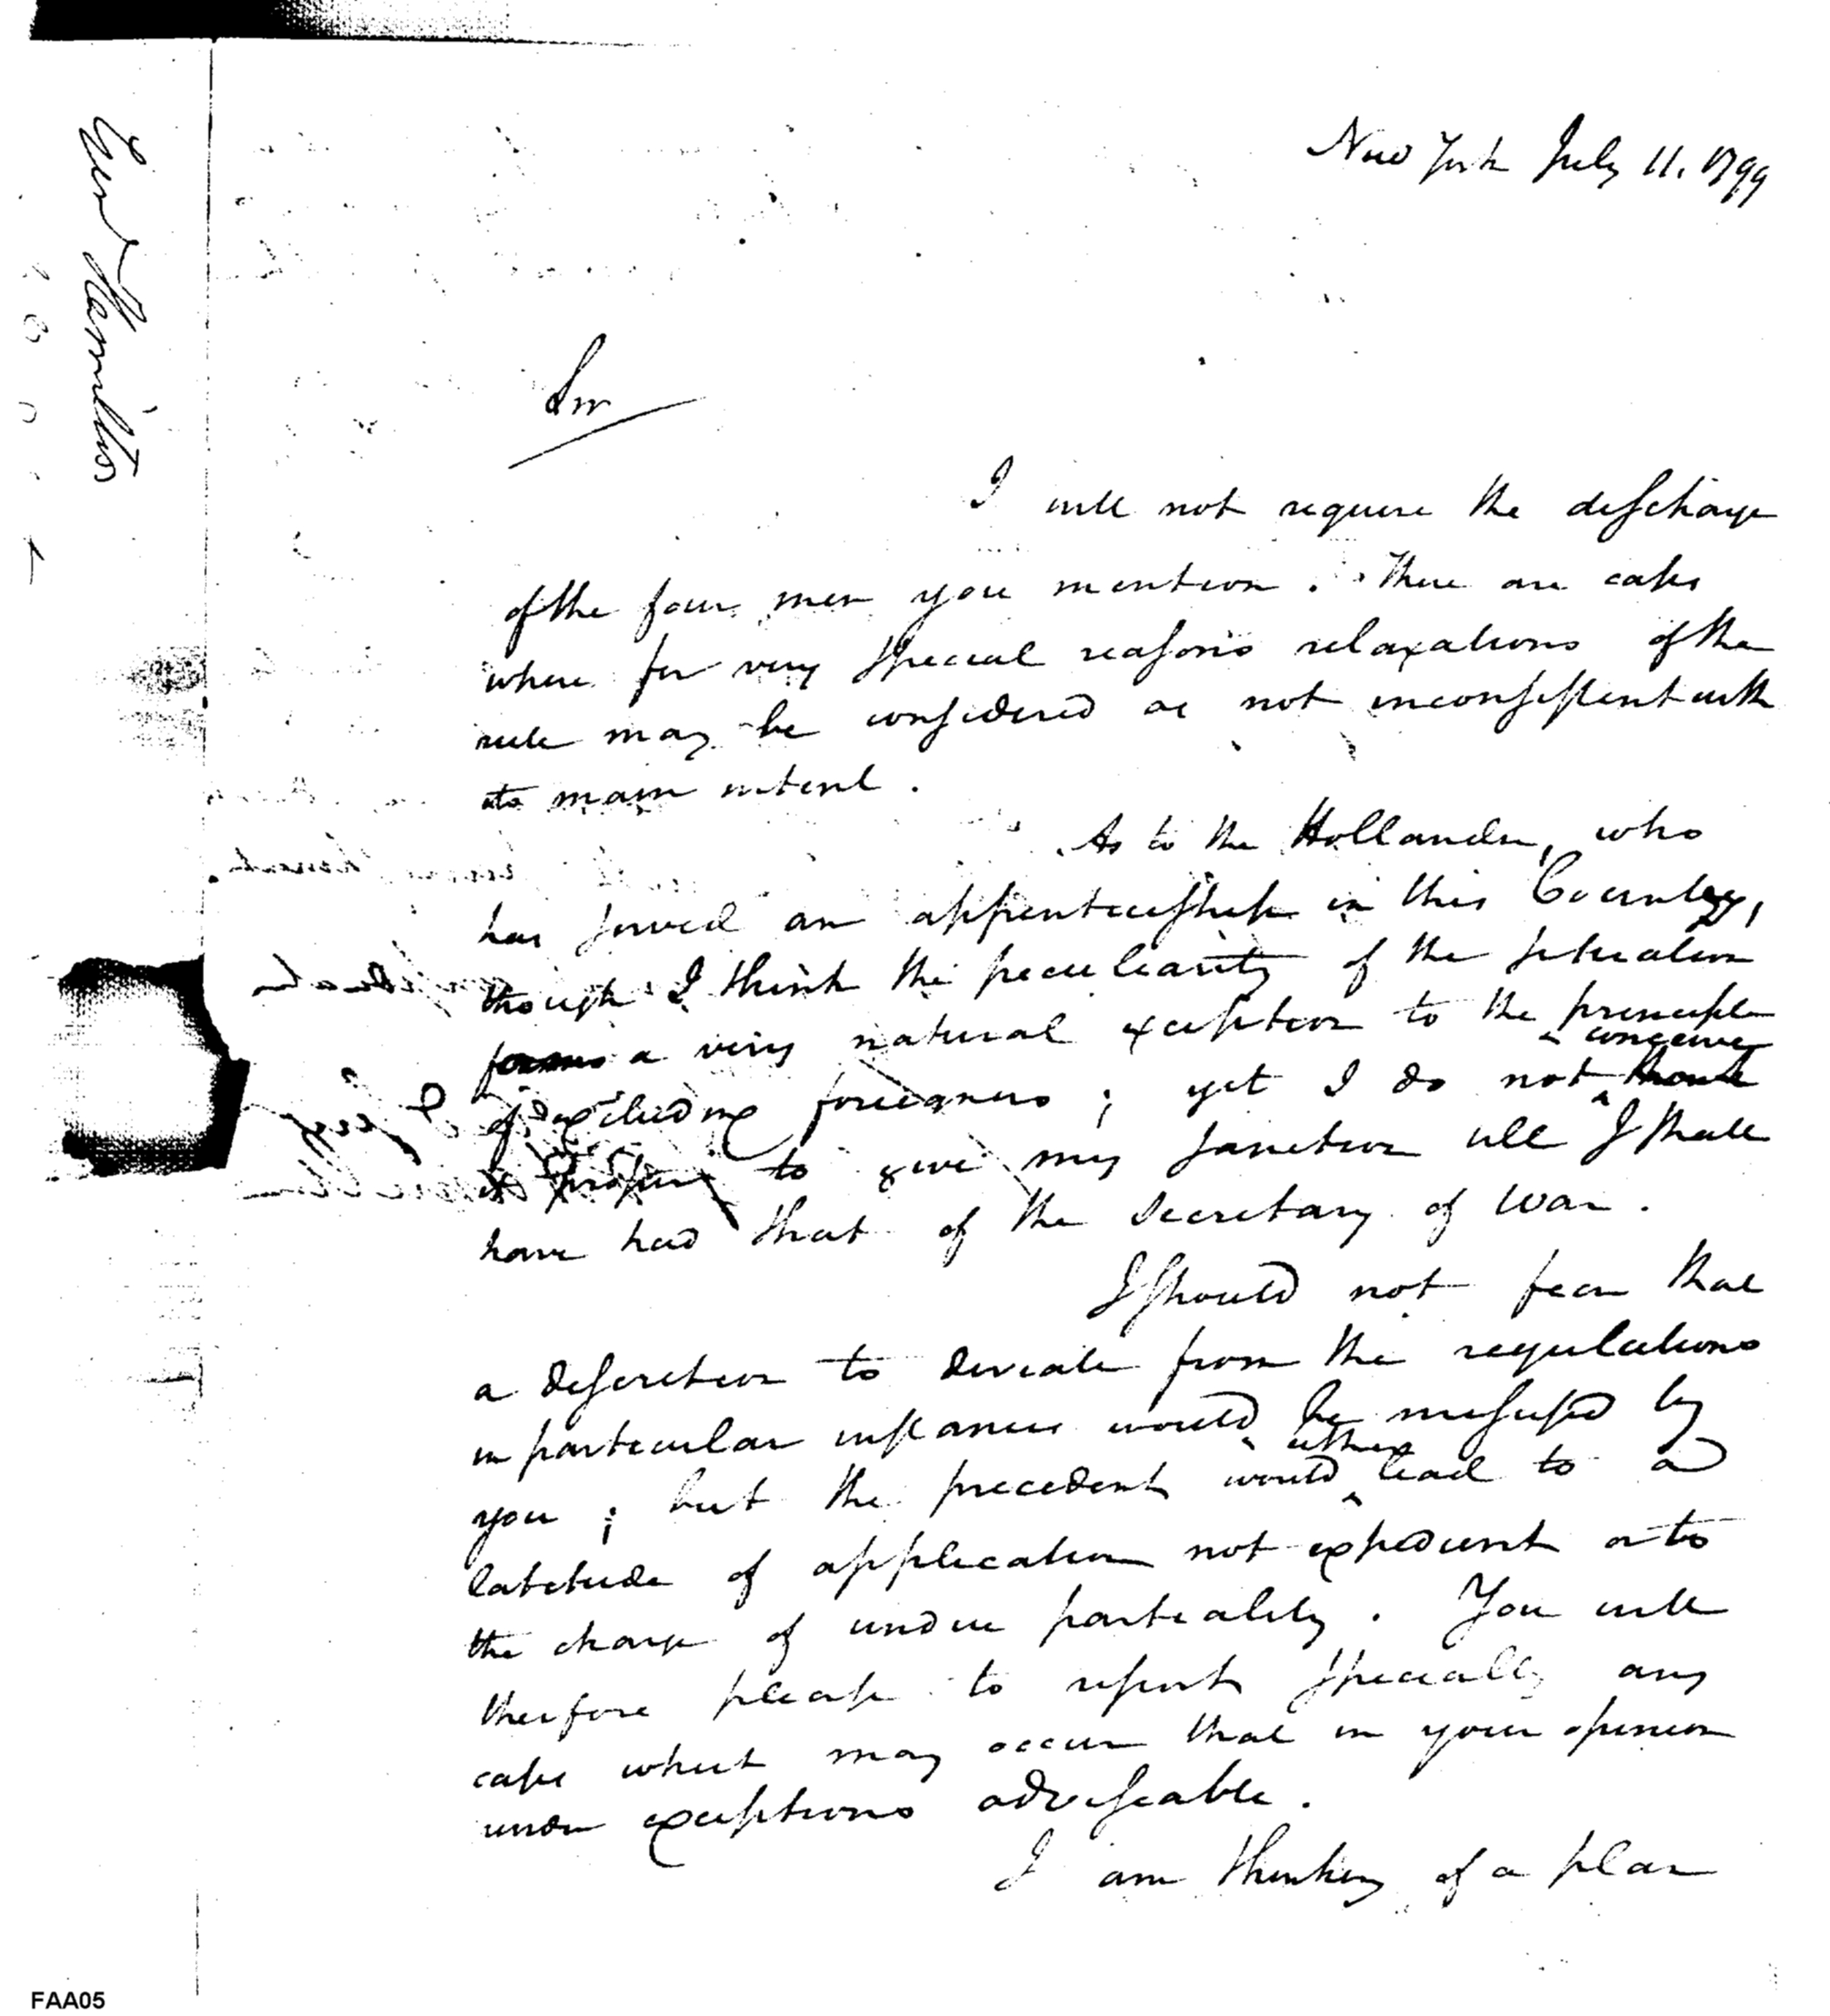 Genl Hamilton
New York July 11. 1799
Sir
I will not require the discharge
of the four men you mention. There are cases
where for very special reasons relaxations of the
rule may be considered as not inconsistent with
its main intent.
As to the Hollander, who
has served an apprenticeship in this Country,
though I think the peculiarity of the situation
forms a very natural exception to the principle
conceive
of excluding foreigners; yet I do not think
it proper to give my sanction till I shall
have had that of the Secretary of War.
I should not fear that
a discretion to deviate from the regulations
in particular instances would be misused by
either
you; but the precedent would lead to a
latitude of application not expedient or to
the charge of undue partiality. You will
therefore please to report specially any
cases which may occur that in your opinion
render exceptions adviseable.
I am thinking of a plan
FAA05